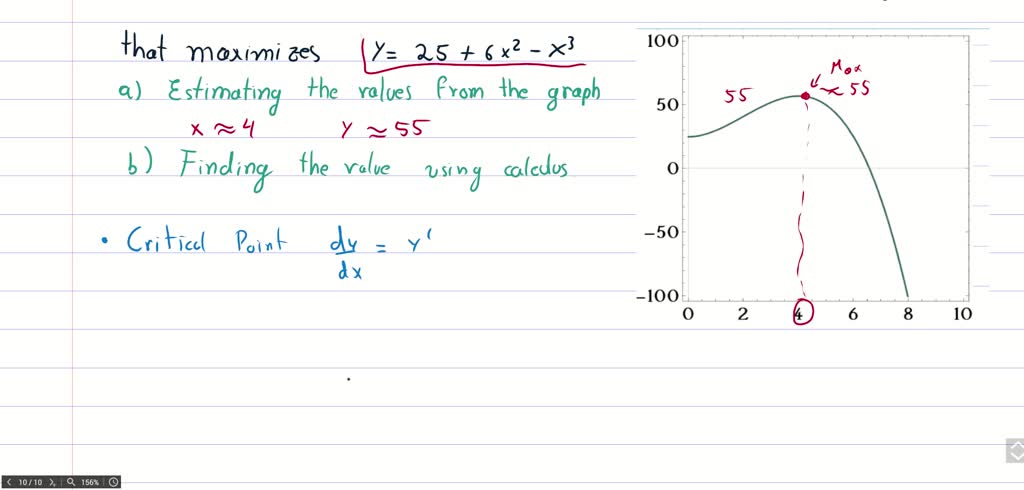 that maximizes y = 25 + 6x² - x³
a) Estimating the values from the graph
x ≈ 4 y ≈ 55
b) Finding the value using calculus
• Critical Point dy/dx = y'
100
50
0
-50
-100
0 2 4 6 8 10
55
Max
≈ 55
10/10
156%